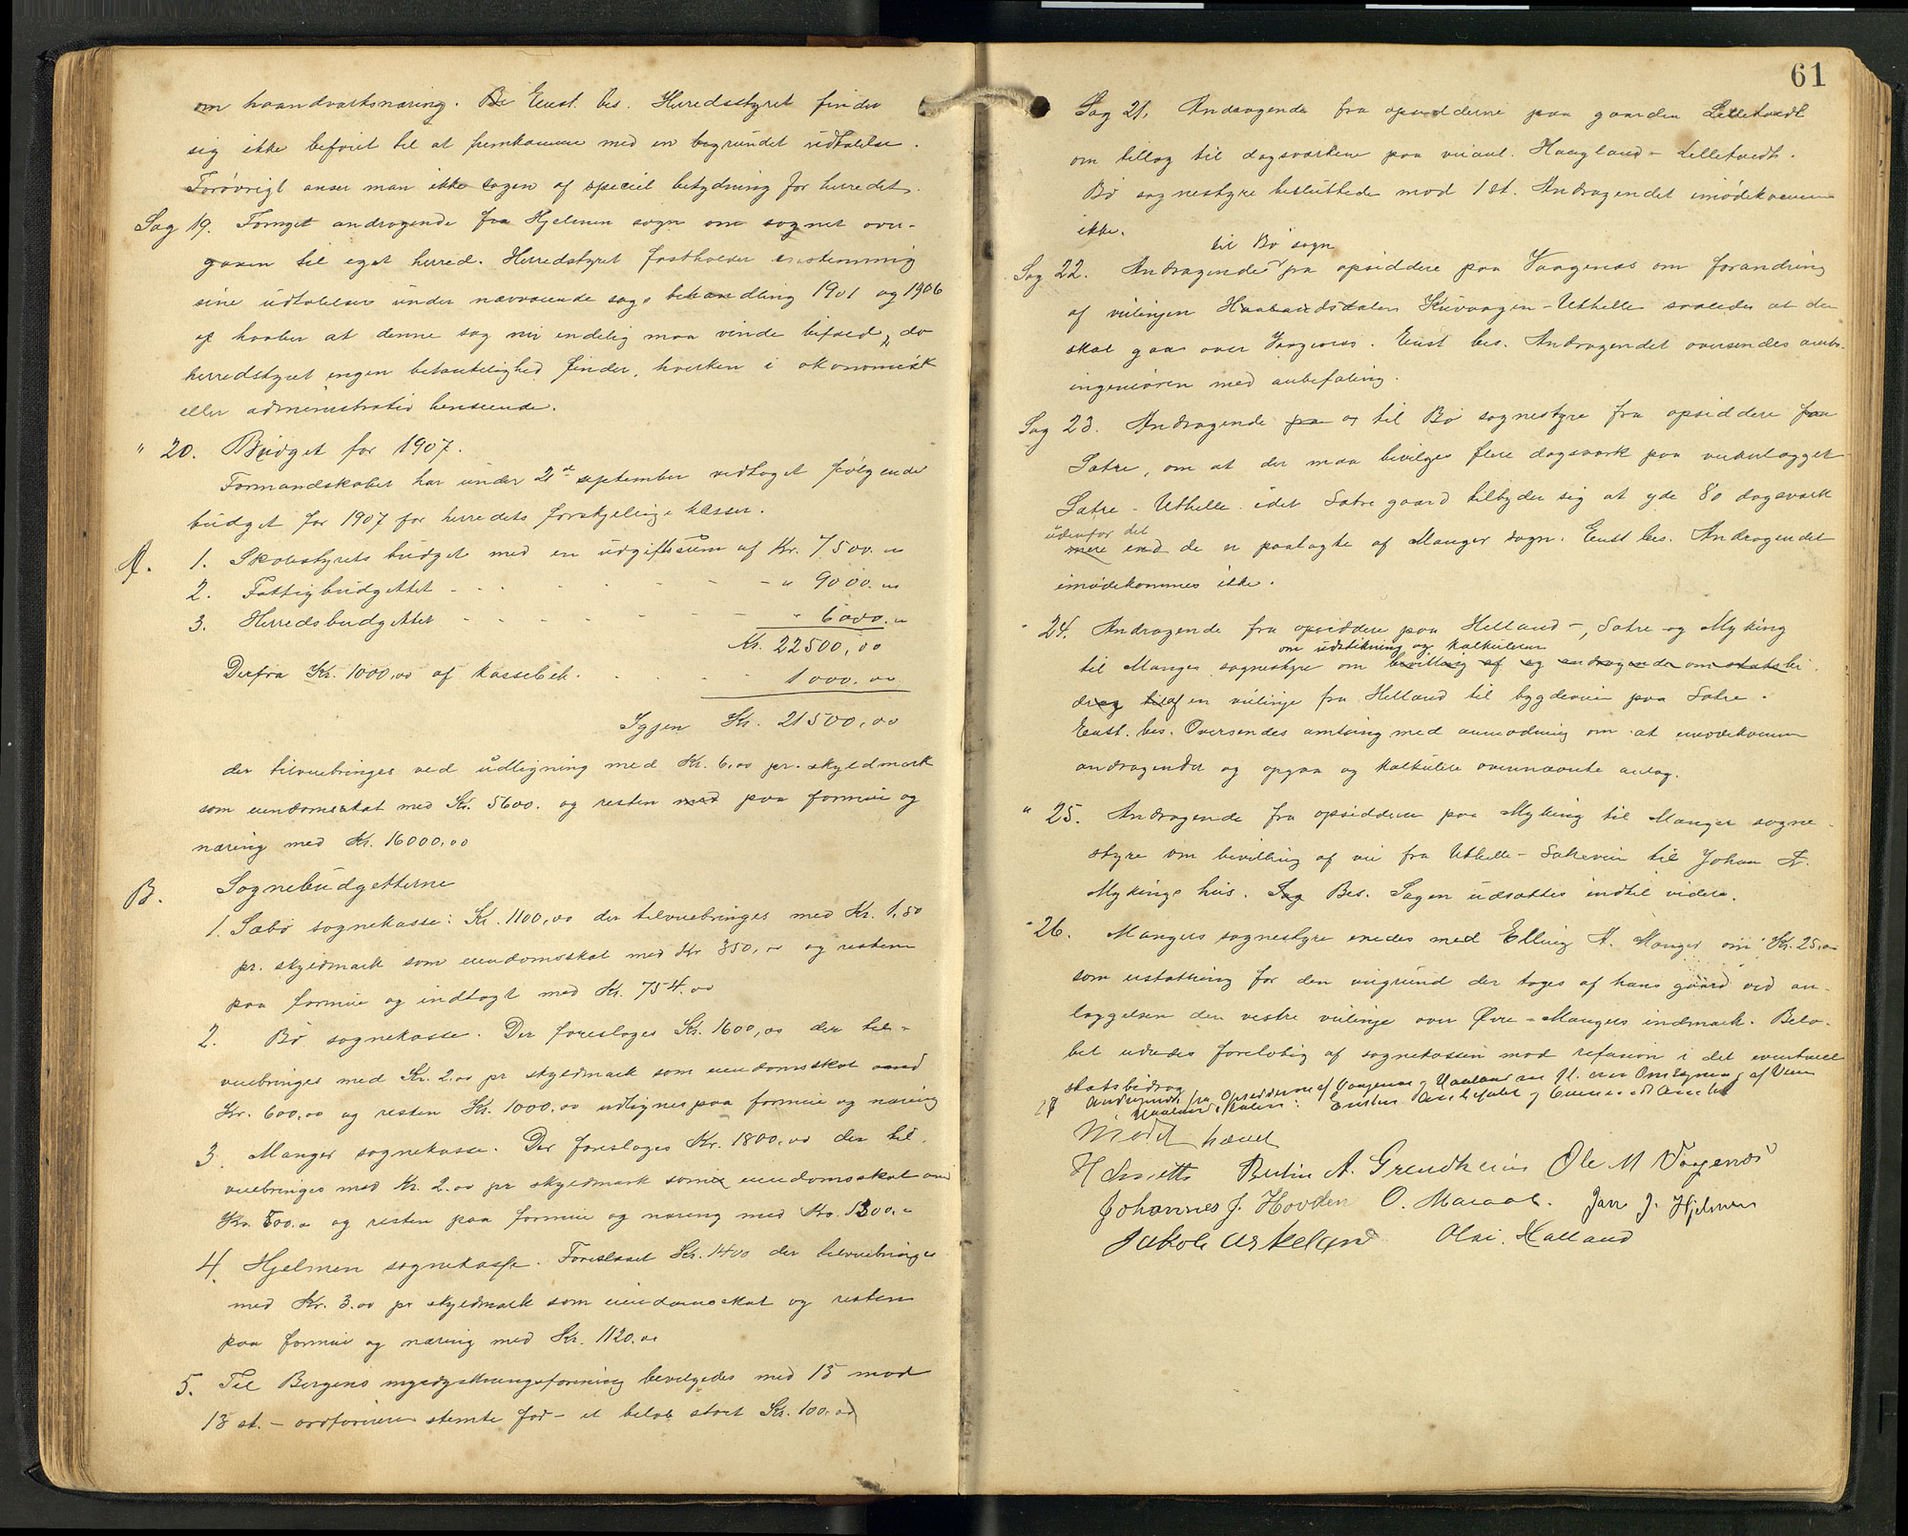 om haandværksnæring. Be Enst. bes. Herredsstyret finder
sig ikke beføiet til at fremkomme med en begrundet udtalelse.
Forøvrigt anser man ikke sagen af speciel betydning for herredet.
Sag 19. Fornyet andragende fra Hjelmen sogn om sognet over-
gaaen til eget herred. Herredstyret fastholder enstemmig
sine udtalelser under nærværende sags behandling 1901 og 1906
og haaber at denne sag nu endelig maa vinde bifald, da
herredstyret ingen betænkelighed finder, hverken i økonomisk
eller administrativ henseende.
" 20. Budget for 1907.
Formandskabet har under 21de september vedtaget følgende
budget for 1907 for herredets forskjellige kasser.
A. 1. Skolestyrets budget med en udgiftssum af Kr. 7500.00
2. Fattigbudgettet - - - - - - " 9000.00
3. Herredsbudgettet - - - - - - " 6000.00
Kr. 22500,00
Derfra Kr. 1000,00 af kassebeh. - - - 1000.00
Igjen Kr. 21500,00
der tilveiebringes ved udligning med Kr. 6,00 pr. skyldmark
som eiendomsskat med Kr. 5600. og resten med paa formue og
næring med Kr. 16000,00
B. Sognebudgetterne
1. Sæbø sognekasse: Kr. 1100,00 der tilveiebringes med Kr. 1,50
pr. skyldmark som eiendomsskat med Kr 350,00 og resten
paa formue og indtægt med Kr. 754.00
2. Bø sognekasse. Der foreslaaes Kr. 1600,00 der til-
veiebringes med Kr. 2.00 pr skyldmark som eiendomsskat med
Kr. 600,00 og resten Kr. 1000.00 udlignes paa formue og næring
3. Manger sognekasse. Der foreslaaes Kr. 1800.00 der til-
veiebringes med Kr. 2.00 pr skyldmark som eiendomsskat med
Kr. 500.00 og resten paa formue og næring med Kr. 1300.00
4. Hjelmen sognekasse. Foreslaaet Kr. 1400 der tilveiebringes
med Kr. 3.00 pr skyldmark som eiendomsskat og resten
paa formue og næring med Kr. 1120.00
5. Til Bergens myrdyrkningsforening bevilgedes med 13 mod
13 st. - ordføreren stemte for - et beløb stort Kr. 100.00
61
Sag 21. Andragende fra opsidderne paa gaarden Lilletvedt
om tillæg til dagsværkene paa veianl. Haugland - Lilletvedt.
Bø sognestyre besluttede mod 1 st. Andragendet imødekommes
ikke.
til Bø sogn
Sag 22. Andragende fra opsiddere paa Vaagenes om forandring
af veilinjen Haalandsdalen Kuvaagen - Uthelle saaledes at den
skal gaa over Vaagenes. Enst bes. Andragendet oversendes amts-
ingeniøren med anbefaling.
Sag 23. Andragende fra og til Bø sognestyre fra opsiddere paa
Sætre, om at der maa bevilges flere dagsværk paa veianlægget
Sætre - Uthelle idet Sætre gaard tilbyder sig at yde 80 dagsværk
udenfor det
mere end de er paalagte af Manger sogn. Enst bes. Andragendet
imødekommes ikke.
" 24. Andragende fra opsiddere paa Helland -, Sætre og Myking
om udstikning og kalkulation
til Manger sognestyre om bevilling af og andragende om statsbi-
drag til af en veilinje fra Helland til bygdeveien paa Sætre.
Enst. bes. Oversendes amtsing med anmodning om at imødekomme
andragendet og opgaa og kalkulere ovennævnte anlæg.
" 25. Andragende fra opsiddere paa Myking til Manger sogne-
styre om bevilling af vei fra Uthelle - Sætreveien til Johan A.
Mykings hus. Sag Bes. Sagen udsættes indtil videre.
" 26. Mangers sognestyre enedes med Elling A. Manger om Kr. 25.00
som erstatning for den veigrund der tages af hans gaard ved an-
læggelsen den vestre veilinje over Øvre - Mangers indmark. Belø-
bet udredes foreløbig af sognekassen mod refusion i det eventuelle
statsbidrag
27 Andragende fra Opsidderne af Vaagenes og Haaland om en Omlægning af Veien
i Haalandsdalen:
Mødet hævet
Rutin A. Grendheim Ole M Vaagenes
Johannes J. Hovden O. Maraas. Jan J. Hjelmen
Jakob Askeland Olai. Halland